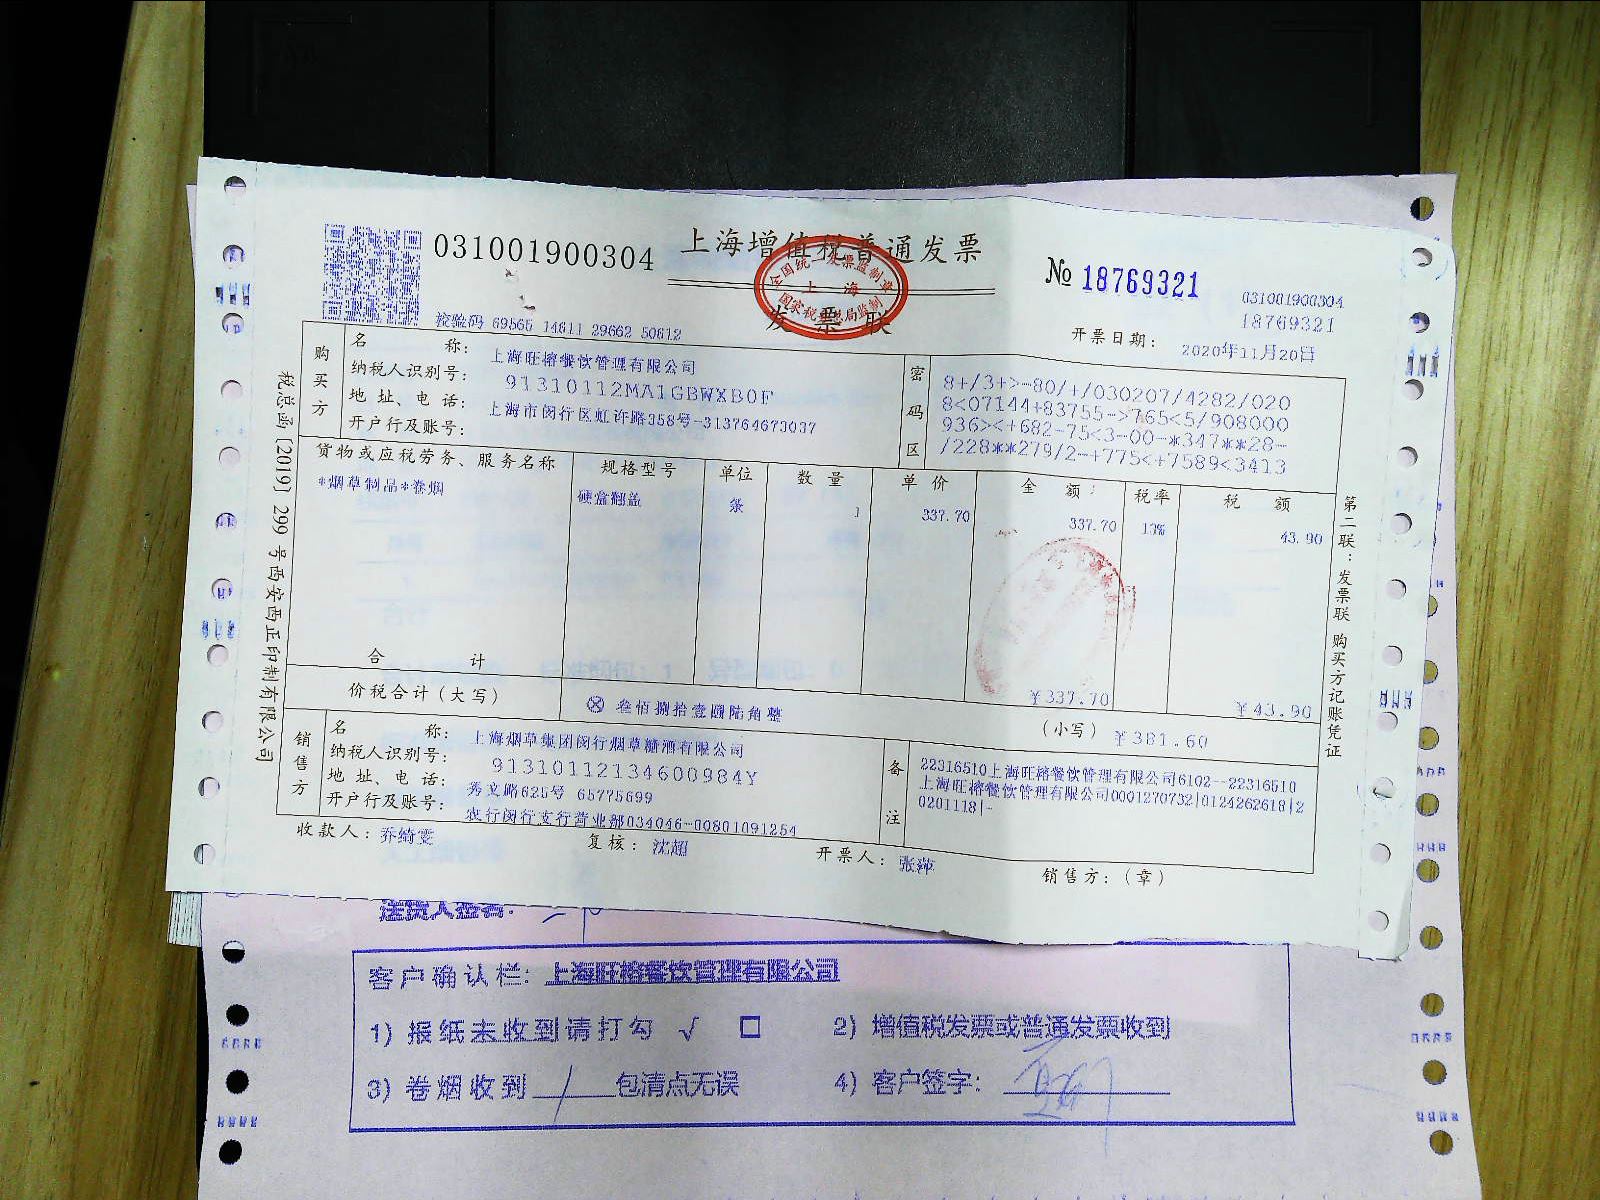 031001900304
上海增值税普通发票
发票联
全国统一发票监制章
上海
国家税务总局监制
№ 18769321
031001900304
18769321
校验码 69565 14611 29662 50612
开票日期: 2020年11月20日
购买方
名 称: 上海旺榕餐饮管理有限公司
纳税人识别号: 91310112MA1GBWXB0F
地 址、电 话: 上海市闵行区虹许路358号-313764673037
开户行及账号:
密码区
8+/3+>-80/+/030207/4282/020
8<07144+83755->765<5/908000
936><+682-75<3-00-*347**28-
/228**279/2-+775<+7589<3413
货物或应税劳务、服务名称 规格型号 单位 数量 单价 金额 税率 税额
*烟草制品*卷烟 硬盒翻盖 条 1 337.70 337.70 13% 43.90
合 计 ¥337.70 ¥43.90
价税合计(大写) ⊗ 叁佰捌拾壹圆陆角整 (小写) ¥381.60
销售方
名 称: 上海烟草集团闵行烟草糖酒有限公司
纳税人识别号: 91310112134600984Y
地 址、电 话: 秀文路625号 65775699
开户行及账号: 农行闵行支行营业部034046-00801091254
备注
22316510上海旺榕餐饮管理有限公司6102--22316510
上海旺榕餐饮管理有限公司0001270732|0124262618|2
0201118|-
收款人: 乔绮雯 复核: 沈超 开票人: 张萍 销售方:(章)
税总函[2019]299号西安西正印制有限公司
第二联:发票联 购买方记账凭证
送货人签名:
客户确认栏: 上海旺榕餐饮管理有限公司
1) 报纸未收到请打勾 √ □ 2) 增值税发票或普通发票收到
3) 卷烟收到 / 包清点无误 4) 客户签字: